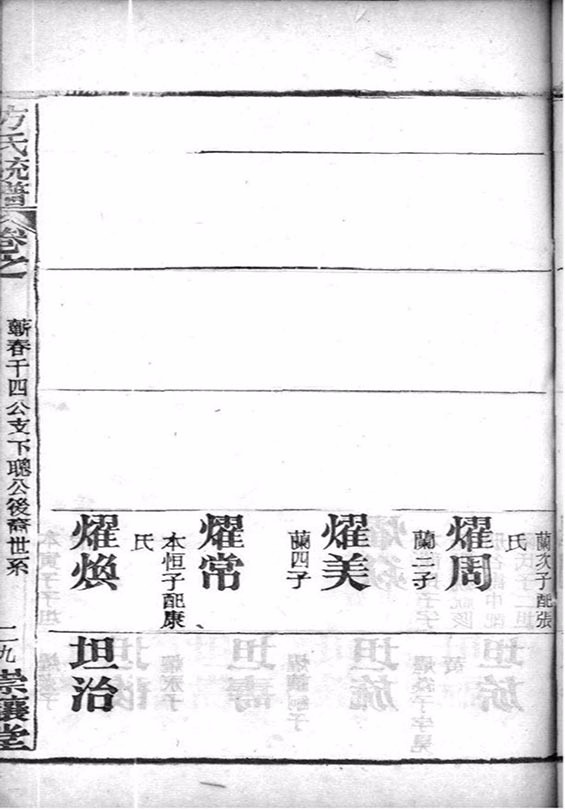 蘭次子配張
氏
燿周
蘭三子
燿美
蘭四子
燿常
本恒子配康
氏
燿煥
坦治
方氏統譜
卷之一
蘄春千四公支下聰公後裔世系
二九
崇讓堂